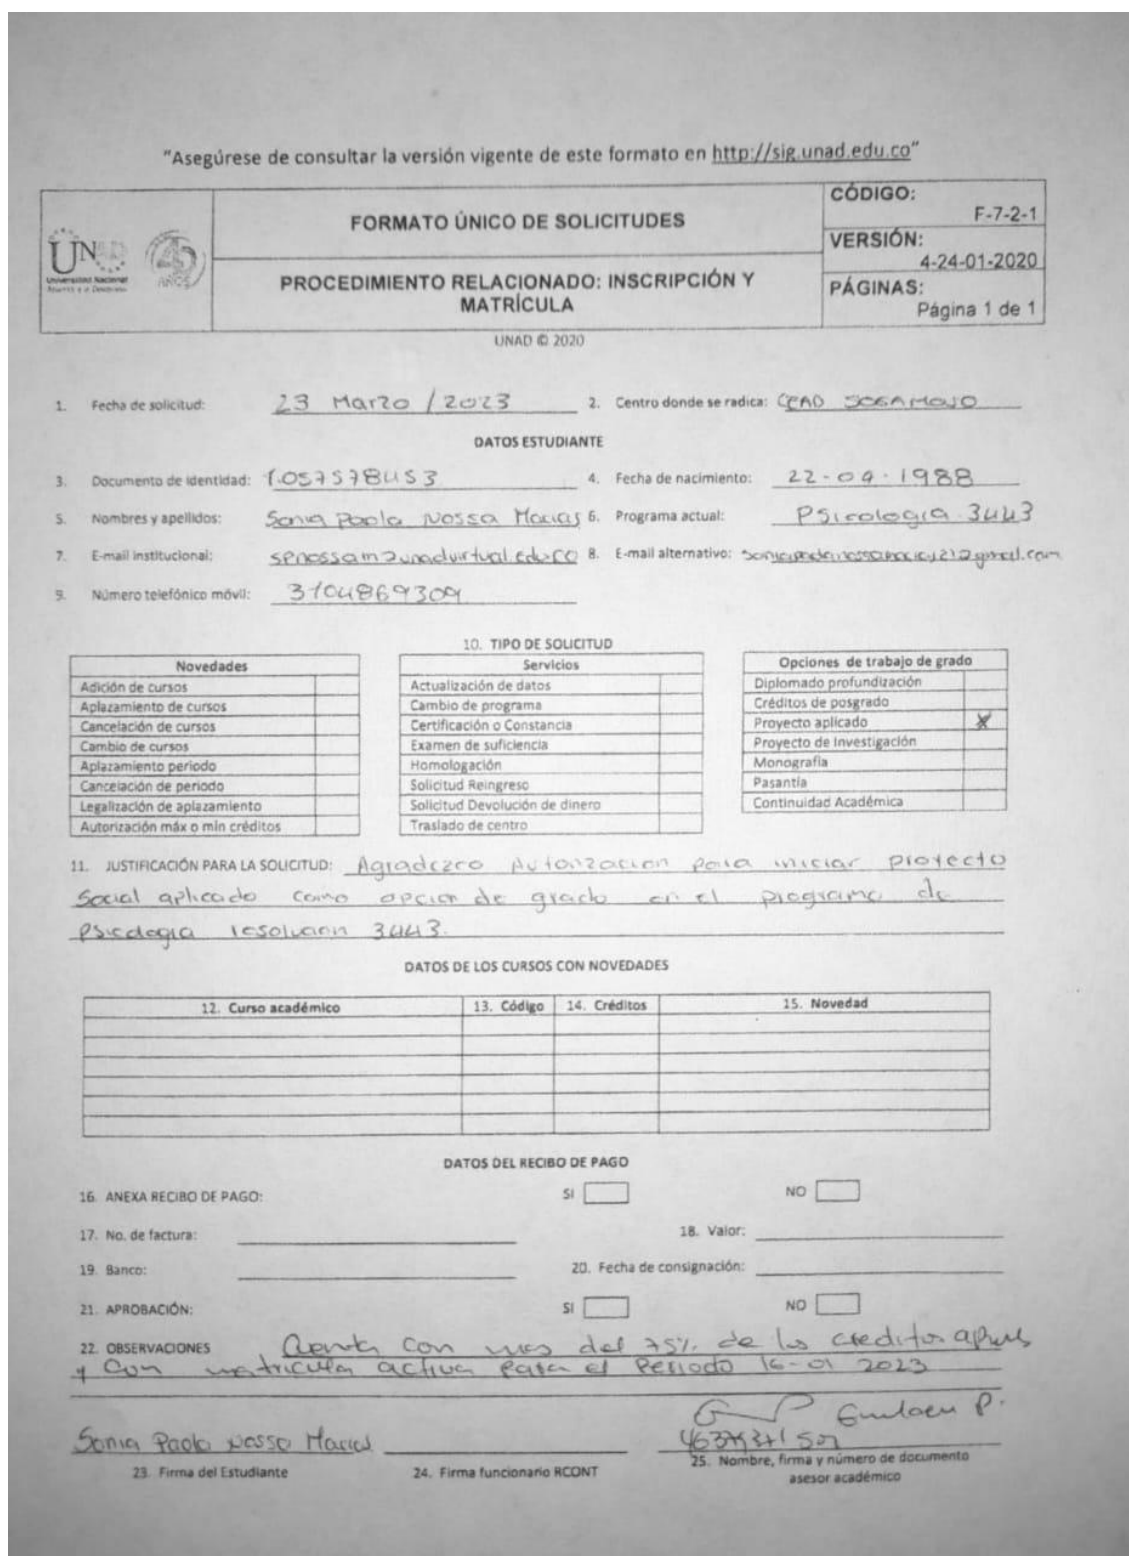 "Asegúrese de consultar la versión vigente de este formato en http://sig.unad.edu.co"
FORMATO ÚNICO DE SOLICITUDES
PROCEDIMIENTO RELACIONADO: INSCRIPCIÓN Y
MATRÍCULA
CÓDIGO:
F-7-2-1
VERSIÓN:
4-24-01-2020
PÁGINAS:
Página 1 de 1
UNAD
Universidad Nacional
Abierta y a Distancia
45
AÑOS
UNAD © 2020
1. Fecha de solicitud: 23 Marzo / 2023 2. Centro donde se radica: CEAD SOGAMOSO
DATOS ESTUDIANTE
3. Documento de identidad: 1.057578453 4. Fecha de nacimiento: 22-09-1988
5. Nombres y apellidos: Sonia Paola Nossa Macias 6. Programa actual: Psicologia 3443
7. E-mail institucional: spnossam@unadvirtual.edu.co 8. E-mail alternativo:
9. Número telefónico móvil: 3104869309
10. TIPO DE SOLICITUD
Novedades
Adición de cursos
Aplazamiento de cursos
Cancelación de cursos
Cambio de cursos
Aplazamiento periodo
Cancelación de periodo
Legalización de aplazamiento
Autorización máx o min créditos
Servicios
Actualización de datos
Cambio de programa
Certificación o Constancia
Examen de suficiencia
Homologación
Solicitud Reingreso
Solicitud Devolución de dinero
Traslado de centro
Opciones de trabajo de grado
Diplomado profundización
Créditos de posgrado
Proyecto aplicado X
Proyecto de Investigación
Monografía
Pasantía
Continuidad Académica
11. JUSTIFICACIÓN PARA LA SOLICITUD: Agradezco Autorizacion para iniciar proyecto
Social aplicado como opcion de grado en el programa de
Psicologia resolucion 3443.
DATOS DE LOS CURSOS CON NOVEDADES
12. Curso académico 13. Código 14. Créditos 15. Novedad
DATOS DEL RECIBO DE PAGO
16. ANEXA RECIBO DE PAGO: SI NO
17. No. de factura: 18. Valor:
19. Banco: 20. Fecha de consignación:
21. APROBACIÓN: SI NO
22. OBSERVACIONES Cuenta con mas del 75% de los creditos
y con matricula activa para el Periodo 16-01 2023
Sonia Paola Nossa Macias
23. Firma del Estudiante
24. Firma funcionario RCONT
25. Nombre, firma y número de documento
asesor académico